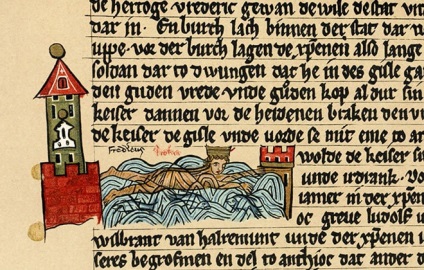 de hertoge vrederic gewan de wile de stat
dar in. En burch lach binnen der stat dar
vor der burch lagen de xpenen also lange
soldan dar to dwungen dat he in des gisle
den guden vrede vnde guden kop al dur sin
keiser dannen vor de heidenen braken den
de keiser de gisle vnde uorde se mit eme to
Fredericus
wolde de keiser
unde vdrank. vo
iamer in der xpen
oc greue ludolf
wilbrant van halremunt vnde der xpenen
seres begrofmen en del to anthioc dat ander